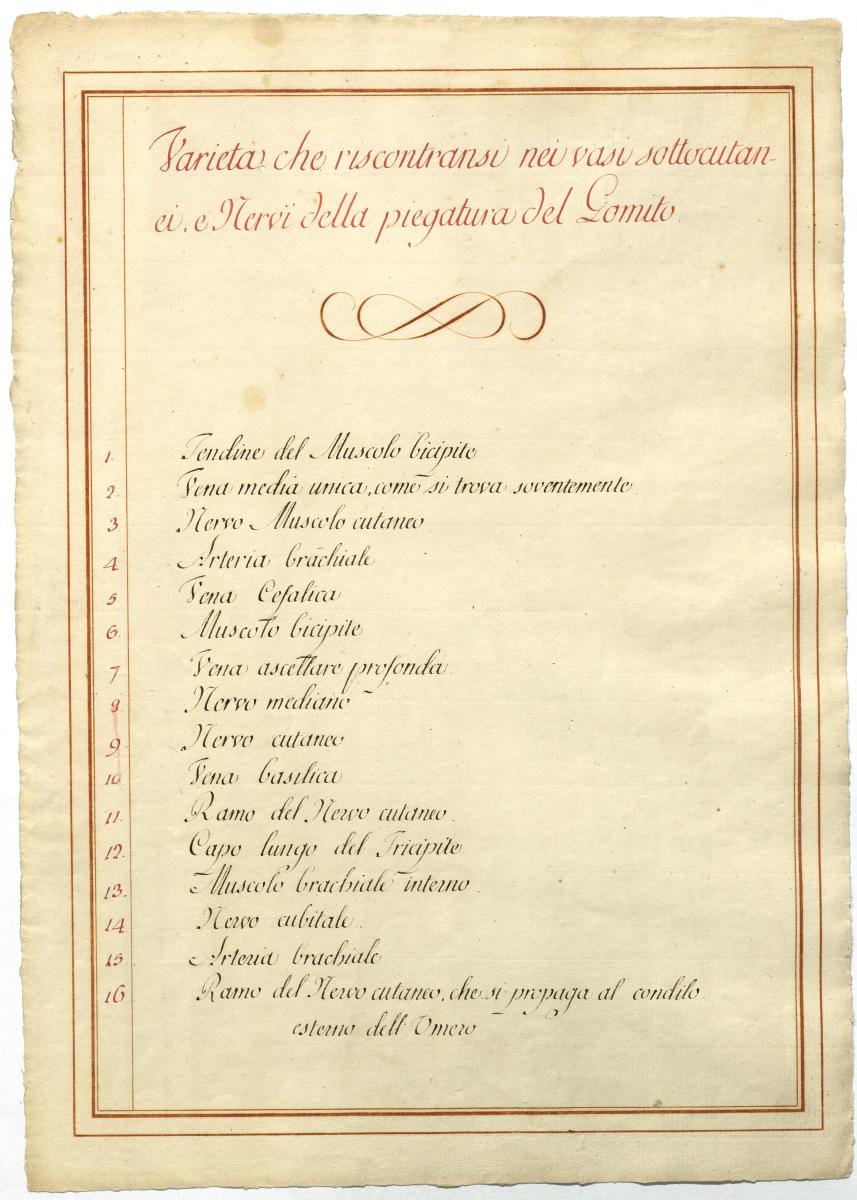 Varietà che riscontransi nei vasi sottocutan-
ei, e Nervi della piegatura del Gomito.
1. Tendine del Muscolo bicipite
2. Vena media unica, come si trova soventemente.
3 Nervo Muscolo cutaneo
4 Arteria brachiale
5 Vena Cefalica
6. Muscolo bicipite
7 Vena ascellare profonda.
8 Nervo mediano
9. Nervo cutaneo
10 Vena basilica
11. Ramo del Nervo cutaneo.
12. Capo lungo del Tricipite
13. Muscolo brachiale interno.
14 Nervo cubitale.
15 Arteria brachiale
16 Ramo del Nervo cutaneo, che si propaga al condilo
esterno dell'Umero